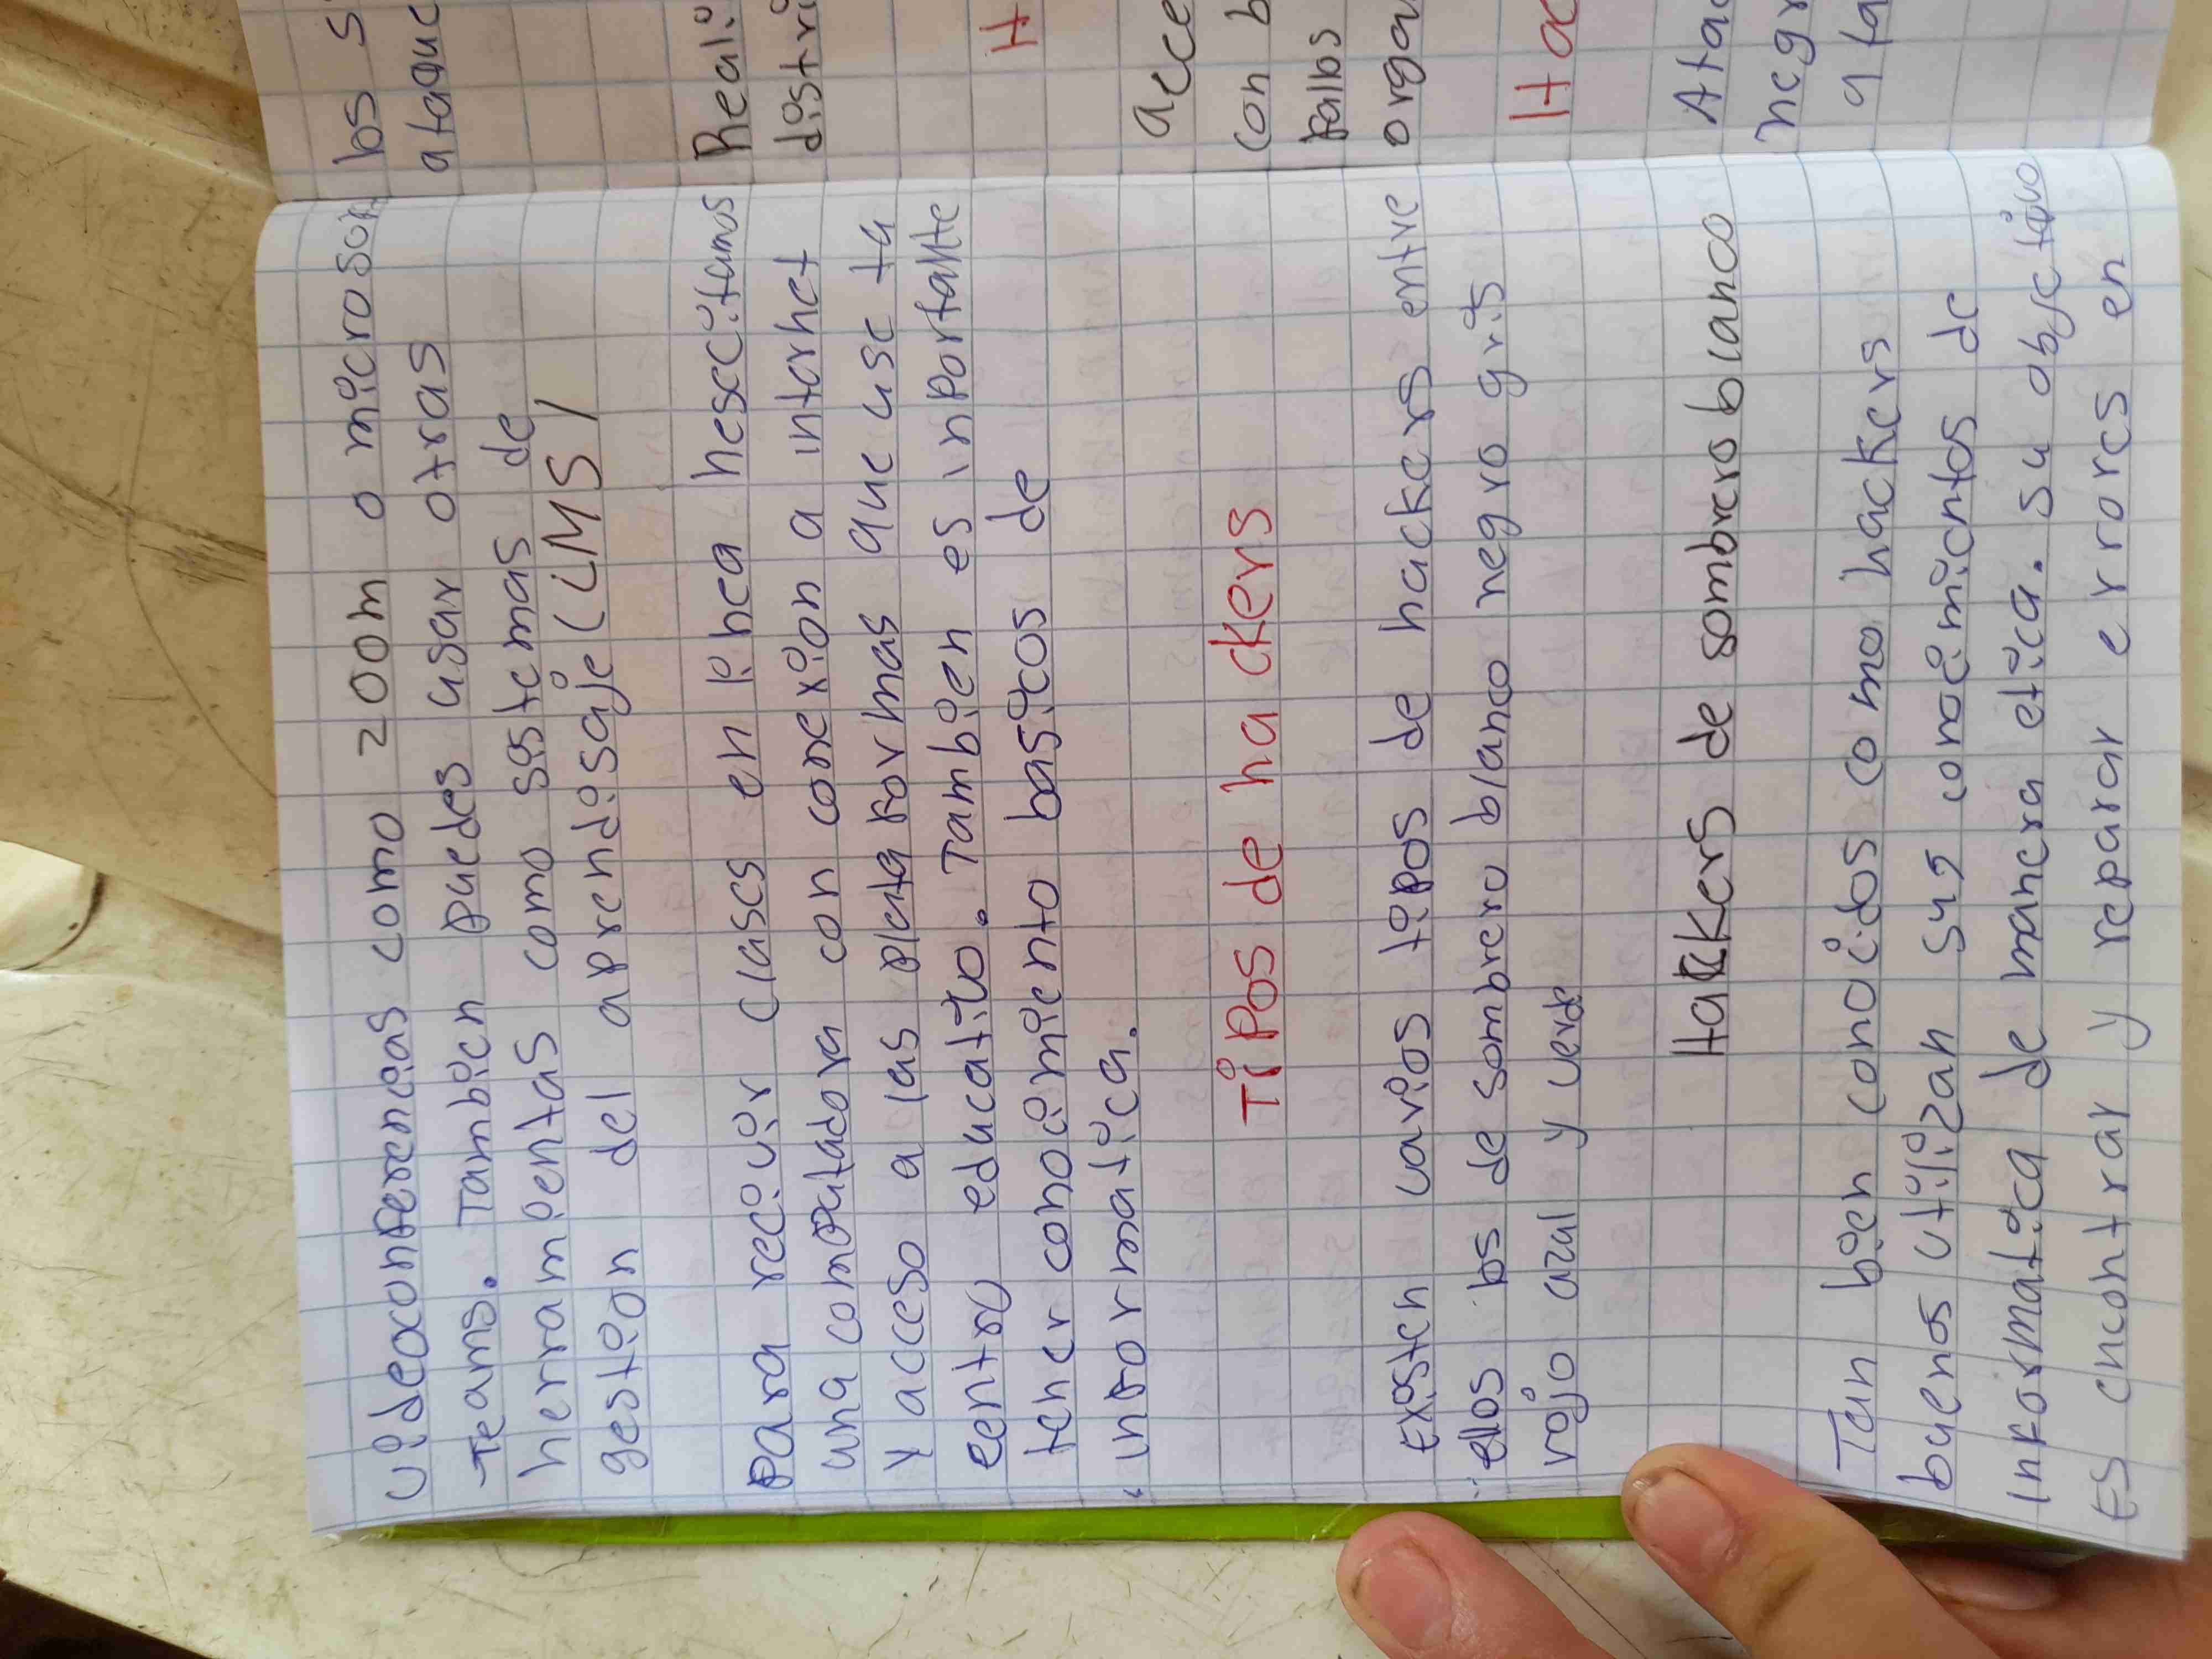 videoconferencias como zoom o microsof
Teams. Tambien puedes usar otras
herramientas como sistemas de
gestion del aprendisaje (LMS)
para recivir clases en linea nesecitamos
una computadora con conexion a internet
y acceso a las plataformas que use tu
centro educatito. Tambien es inportante
tener conocimiento basicos de
informatica.
Tipos de hackers
Existen varios tipos de hackers entre
ellos los de sombrero blanco negro gris
rojo azul y verde
Hackers de sombrero blanco
Tan bien conocidos como hackers
buenos utilizan sus conocimientos de
informatica de manera etica. su objctivo
Es encontrar y reparar errores en
los s
ataque
Reali
distri
H
acce
con b
fallos
orga
Hac
Atac
negr
a fa